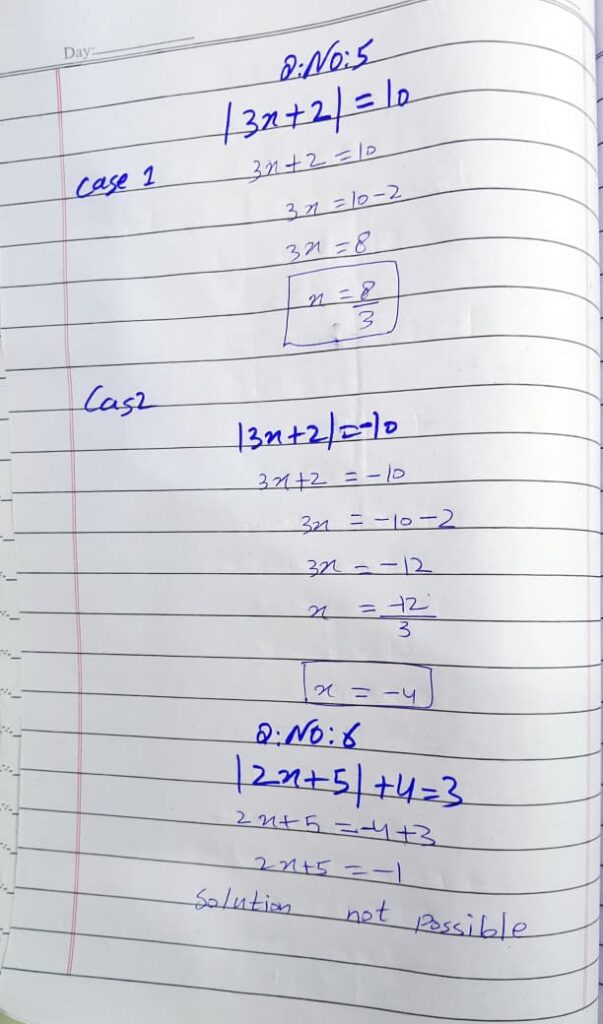 Day:
Q:NO:5
|3x+2| = 10
Case 1
3x+2 = 10
3x = 10-2
3x = 8
x = 8/3
Cas2
|3x+2| = -10
3x+2 = -10
3x = -10-2
3x = -12
x = -12/3
x = -4
Q:NO:6
|2x+5|+4=3
2x+5 = -4+3
2x+5 = -1
Solution not possible